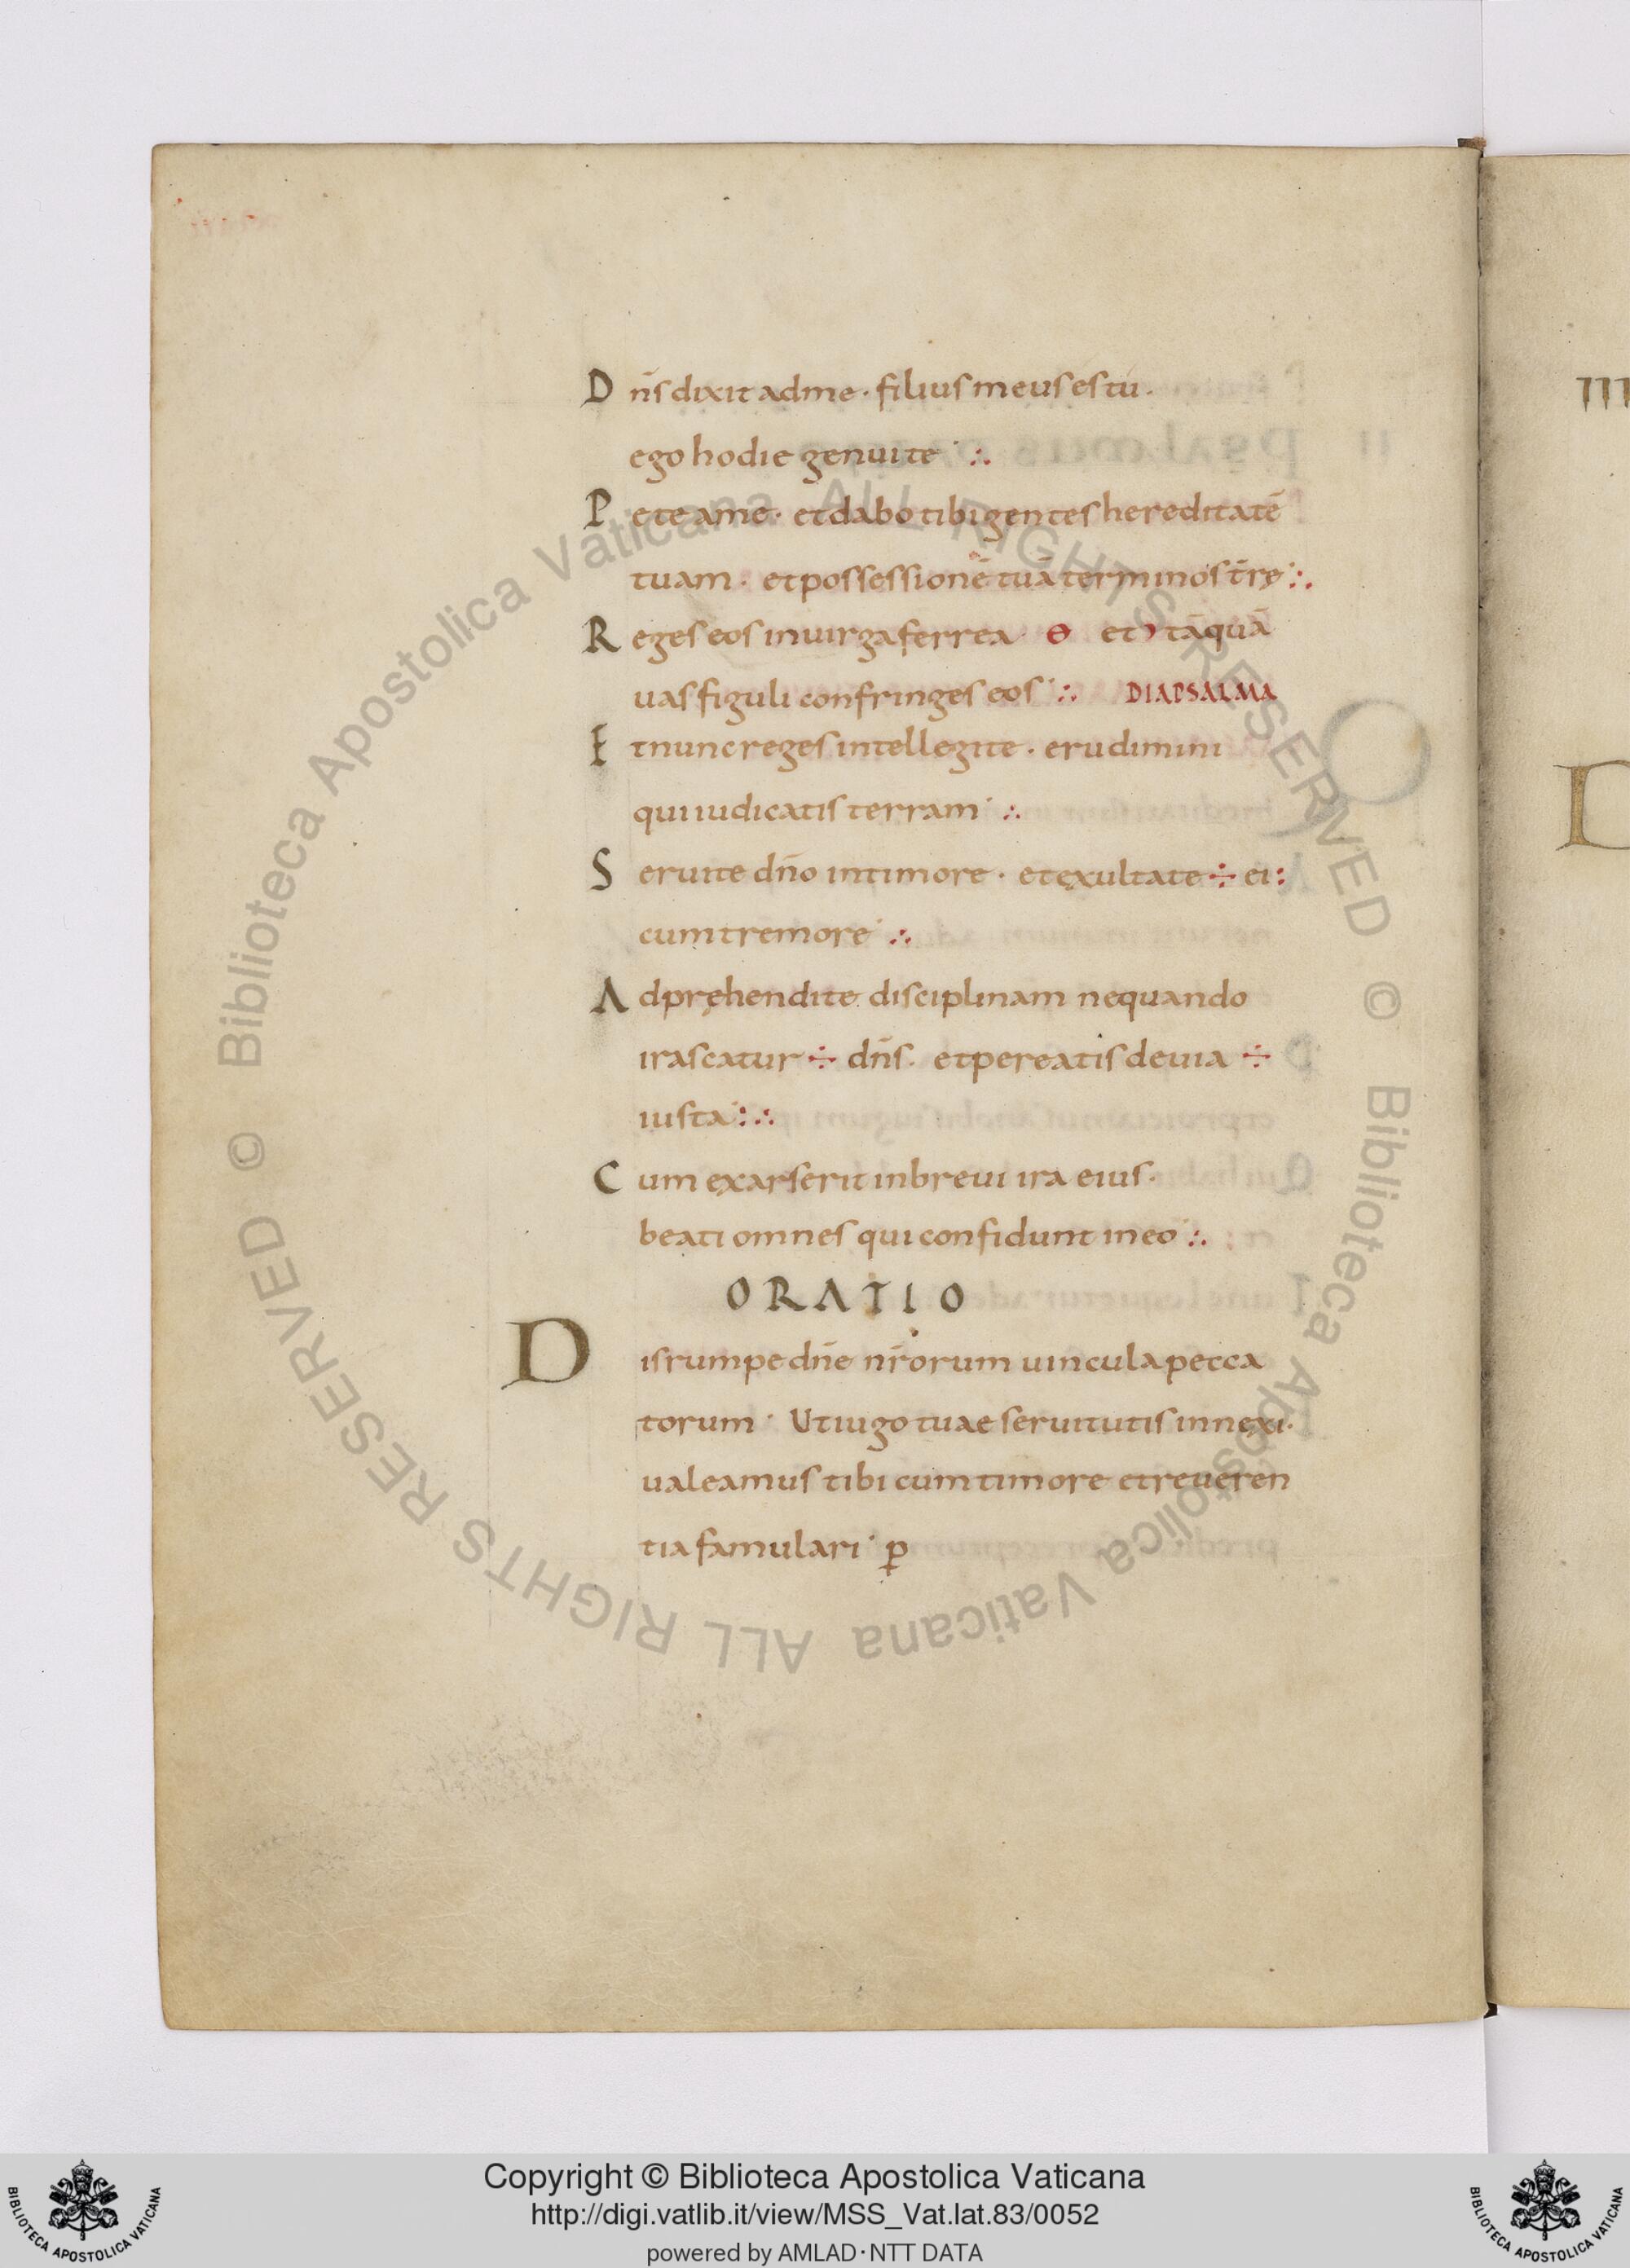 D n̄s dixit ad me · filius meus es tu ·
ego hodie genui te ∴
P ete a me · et dabo tibi gentes hereditatē
tuam · et possessionē tuā terminos t̄rę ∴
R eges eos in uirga ferrea · ɵ et tāquā
uas figuli confringes eos ∴ DIAPSALMA
E t nunc reges intellegite · erudimini
qui iudicatis terram ∴
S eruite dn̄o in timore · et exultate ÷ ei :
cum tremore ∴
A dpręhendite disciplinam nequando
irascatur ÷ dn̄s · et pereatis de uia ÷
iusta : ∴
C um exarserit in breui ira eius ·
beati omnes qui confidunt in eo ∴
ORATIO
D isrumpe dn̄e nr̄orum uincula pecca
torum · Ut iugo tuae seruitutis innexi ·
ualeamus tibi cum timore et reueren
tia famulari · ꝑ
III
D
© Biblioteca Apostolica Vaticana ALL RIGHTS RESERVED © Biblioteca Apostolica Vaticana ALL RIGHTS RESERVED
Copyright © Biblioteca Apostolica Vaticana
http://digi.vatlib.it/view/MSS_Vat.lat.83/0052
powered by AMLAD·NTT DATA
BIBLIOTECA APOSTOLICA VATICANA
BIBLIOTECA APOSTOLICA VATICANA